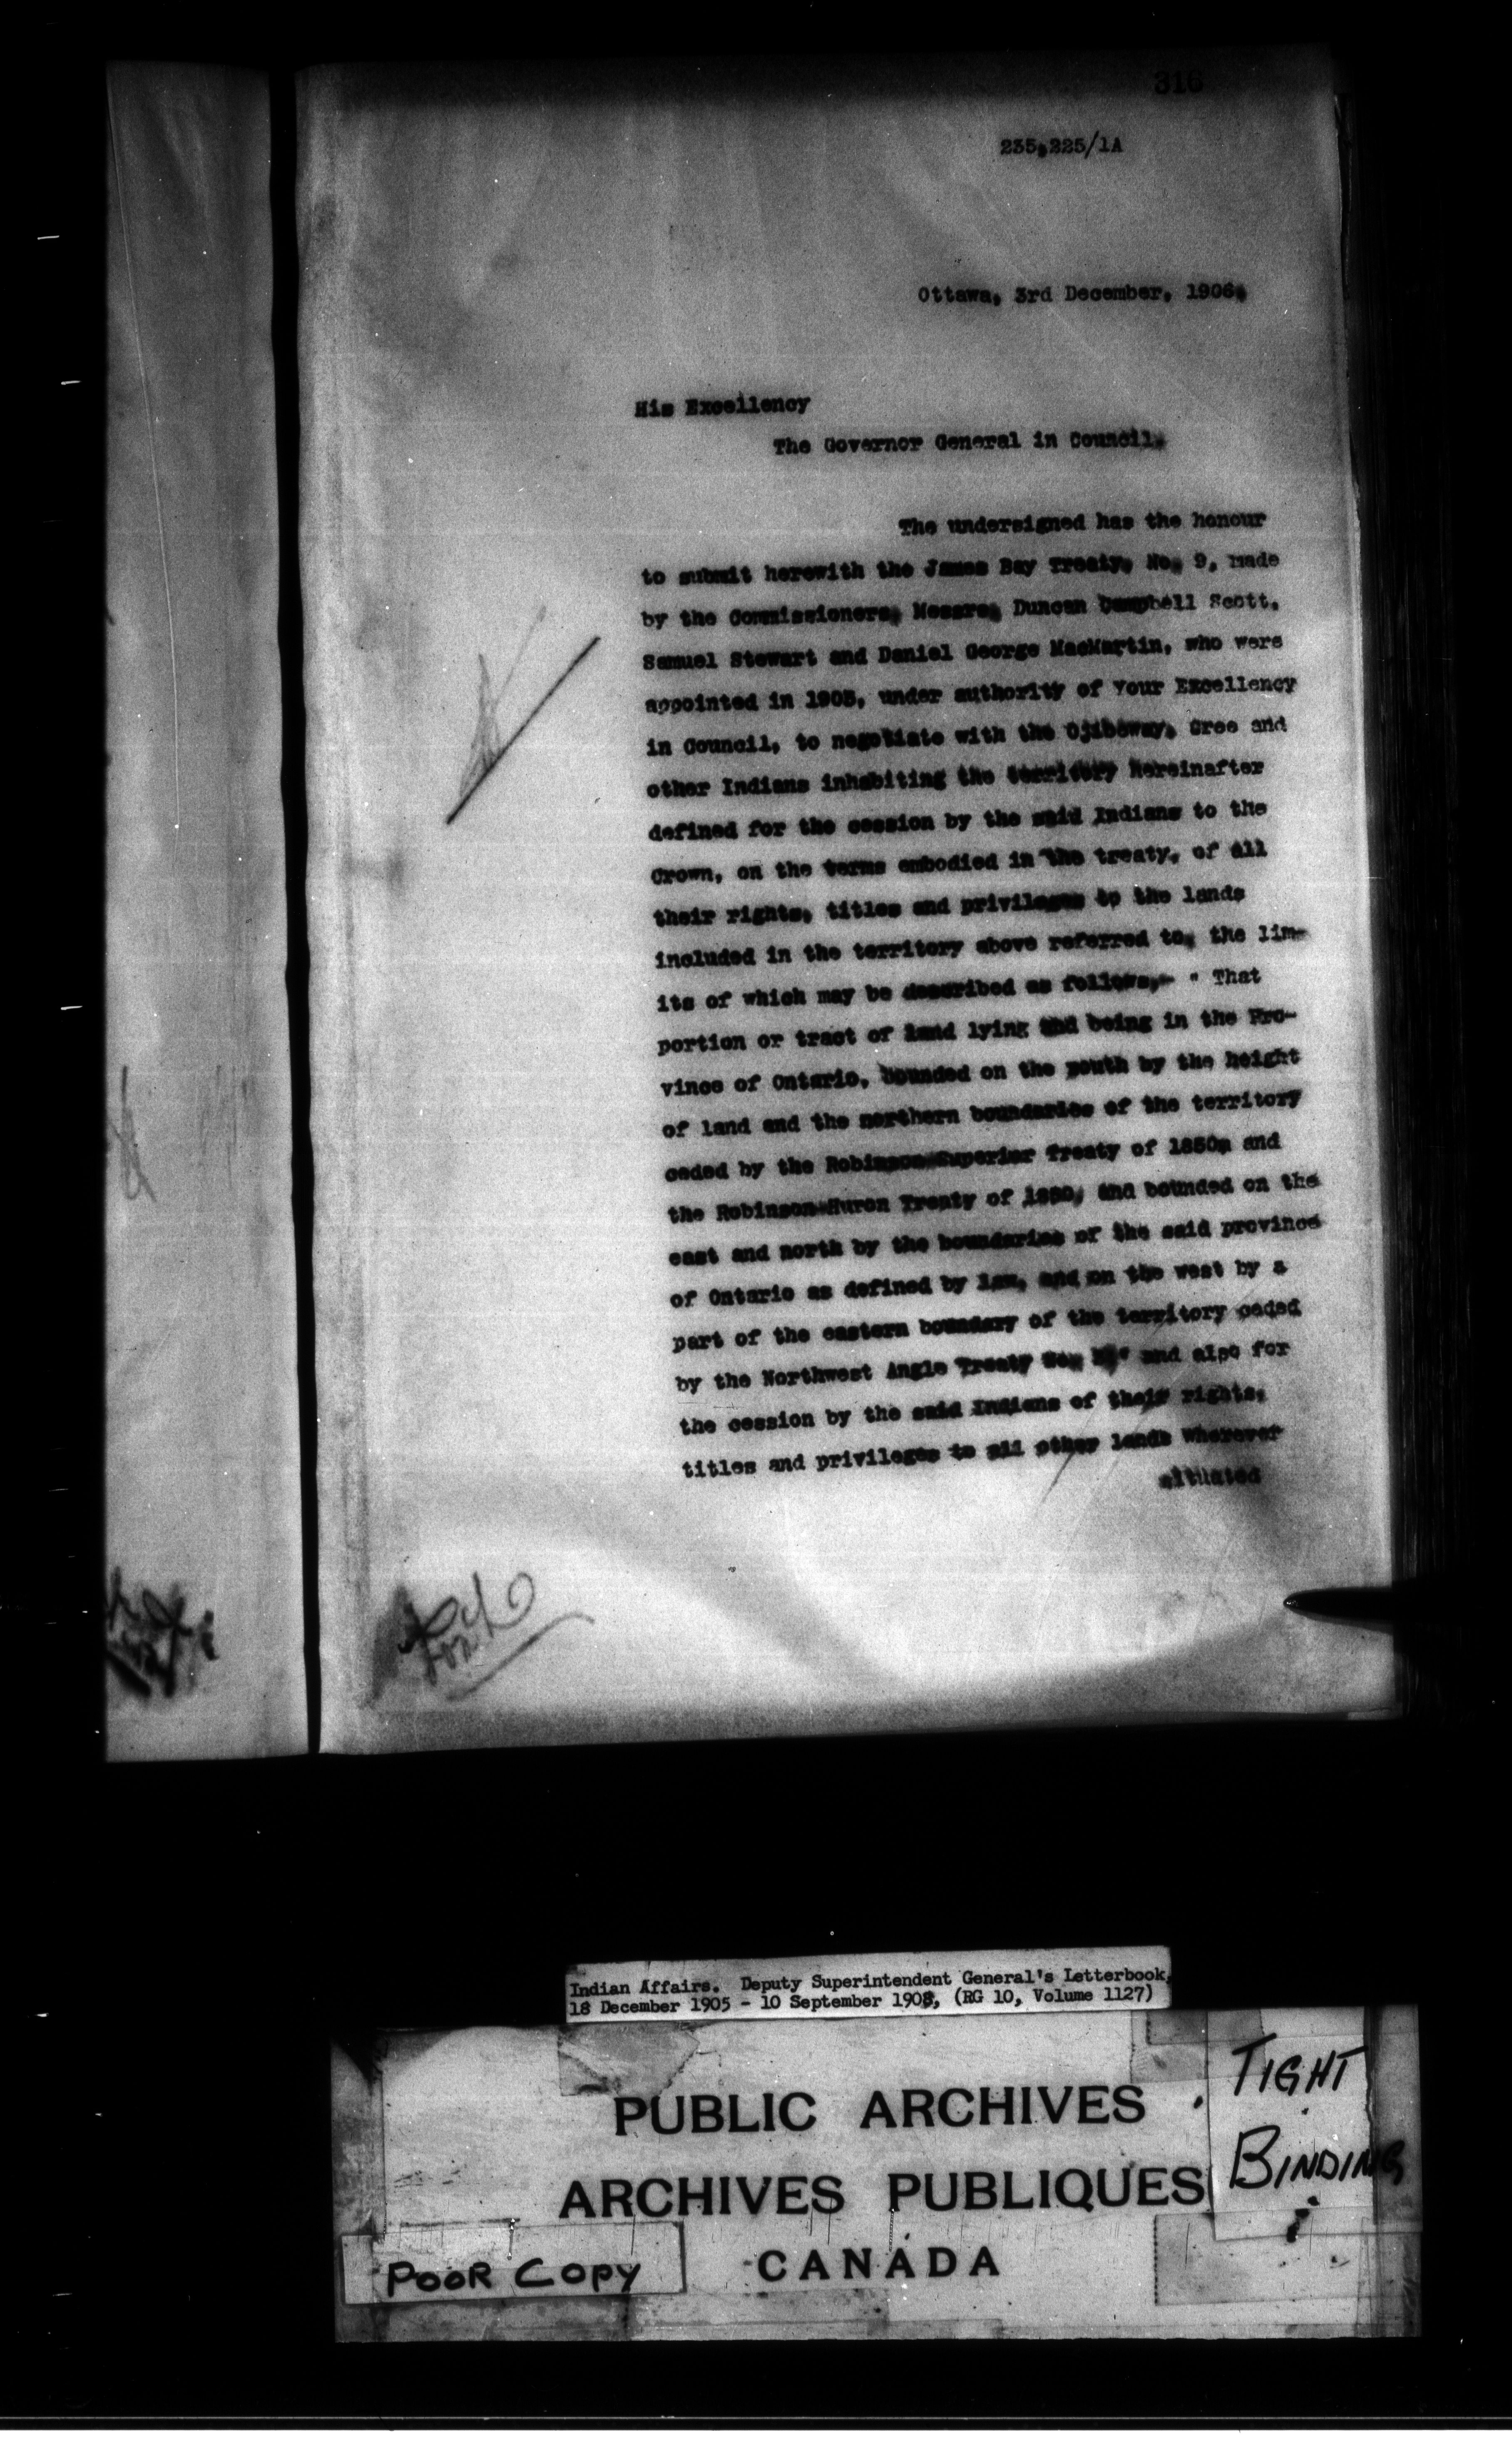 316
235,225/1A
Ottawa, 3rd December, 1906.
His Excellency
The Governor General in Council.
The undersigned has the honour
to submit herewith the James Bay Treaty, No. 9, made
by the Commissioners, Messrs. Duncan Campbell Scott,
Samuel Stewart and Daniel George MacMartin, who were
appointed in 1905, under authority of Your Excellency
in Council, to negotiate with the Ojibeway, Cree and
other Indians inhabiting the territory hereinafter
defined for the cession by the said Indians to the
Crown, on the terms embodied in the treaty, of all
their rights, titles and privileges to the lands
included in the territory above referred to, the lim-
its of which may be described as follows,- " That
portion or tract of land lying and being in the Pro-
vince of Ontario, bounded on the south by the height
of land and the northern boundaries of the territory
ceded by the Robinson-Superior Treaty of 1850, and
the Robinson-Huron Treaty of 1850, and bounded on the
east and north by the boundaries of the said province
of Ontario as defined by law, and on the west by a
part of the eastern boundary of the territory ceded
by the Northwest Angle Treaty No. and also for
the cession by the said Indians of their rights,
titles and privileges to all other lands wherever
situated
Indian Affairs. Deputy Superintendent General's Letterbook,
18 December 1905 - 10 September 1908, (RG 10, Volume 1127)
TIGHT
BINDING
PUBLIC ARCHIVES
ARCHIVES PUBLIQUES
CANADA
POOR COPY